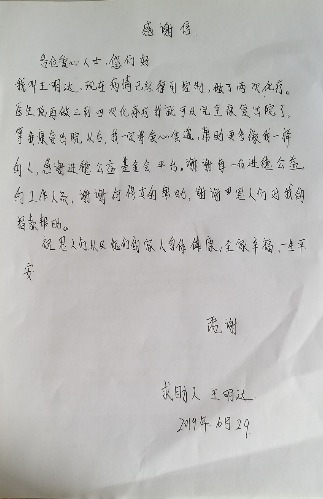 感谢信
各位爱心人士,您们好
我叫王明达,现在病情已经得到控制,做了两次化疗。
医生说再做二到四次化疗的话就可以完全康复出院了。
等我康复出院以后,我一定将爱心传递,帮助更多像我一样
的人,感谢进德公益基金会平台。谢谢每一位进德公益
的工作人员,谢谢对我的帮助,谢谢恩人们对我的
捐款帮助。
祝恩人们以及他们的家人身体健康,全家幸福,一生平
安
感谢
求助人 王明达
2019年6月29